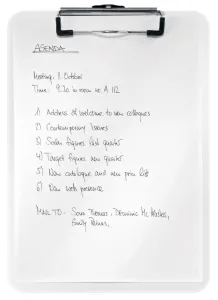 AGENDA
Meeting: 8. October
Time: 9.20 in room nr. A 112
1) Address of welcome to new colleagues
2) Contemporary Issues
3) Sales figures last quarter
4) Target figures new quarter
5) New catalogue and new price list
6) New web presence
MAIL TO: Thomas, Dominic Mc